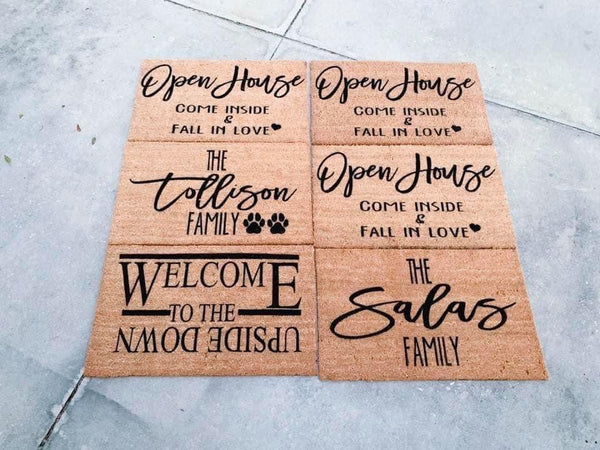 Open House
COME INSIDE
&
FALL IN LOVE
Open House
COME INSIDE
&
FALL IN LOVE
THE
Tollison
FAMILY
Open House
COME INSIDE
&
FALL IN LOVE
WELCOME
TO THE
UPSIDE DOWN
THE
Salas
FAMILY